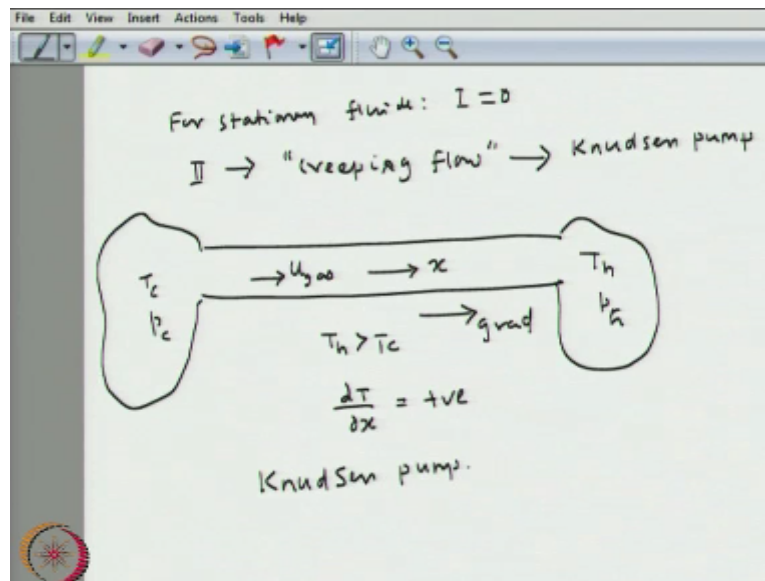 File Edit View Insert Actions Tools Help
For stationary fluid: I = 0
II → "creeping flow" → Knudsen pump
T_c → u_gas → x T_h
p_c p_h
T_h > T_c → grad
∂T/∂x = +ve
Knudsen pump.